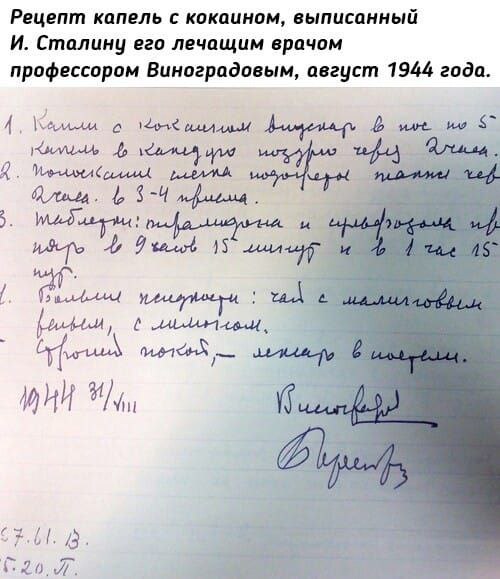 Рецепт капель с кокаином, выписанный
И. Сталину его лечащим врачом
профессором Виноградовым, август 1944 года.
1. Капли с кокаином впускать в нос по 5
капель в каждую ноздрю через 2 часа.
2. Полоскание слегка подогретое также чер
2 часа. в 3-4 приема.
3. Таблетки: пирамидона и сульфазола пр
нять в 9 часов 15 минут и в 1 час 15
нут.
Больше жидкости: чай с малиновым
реньем, с лимоном.
Строгий покой, – лежать в постели.
1944 31/VIII
Виноградов
57.61. В.
5.20. П.